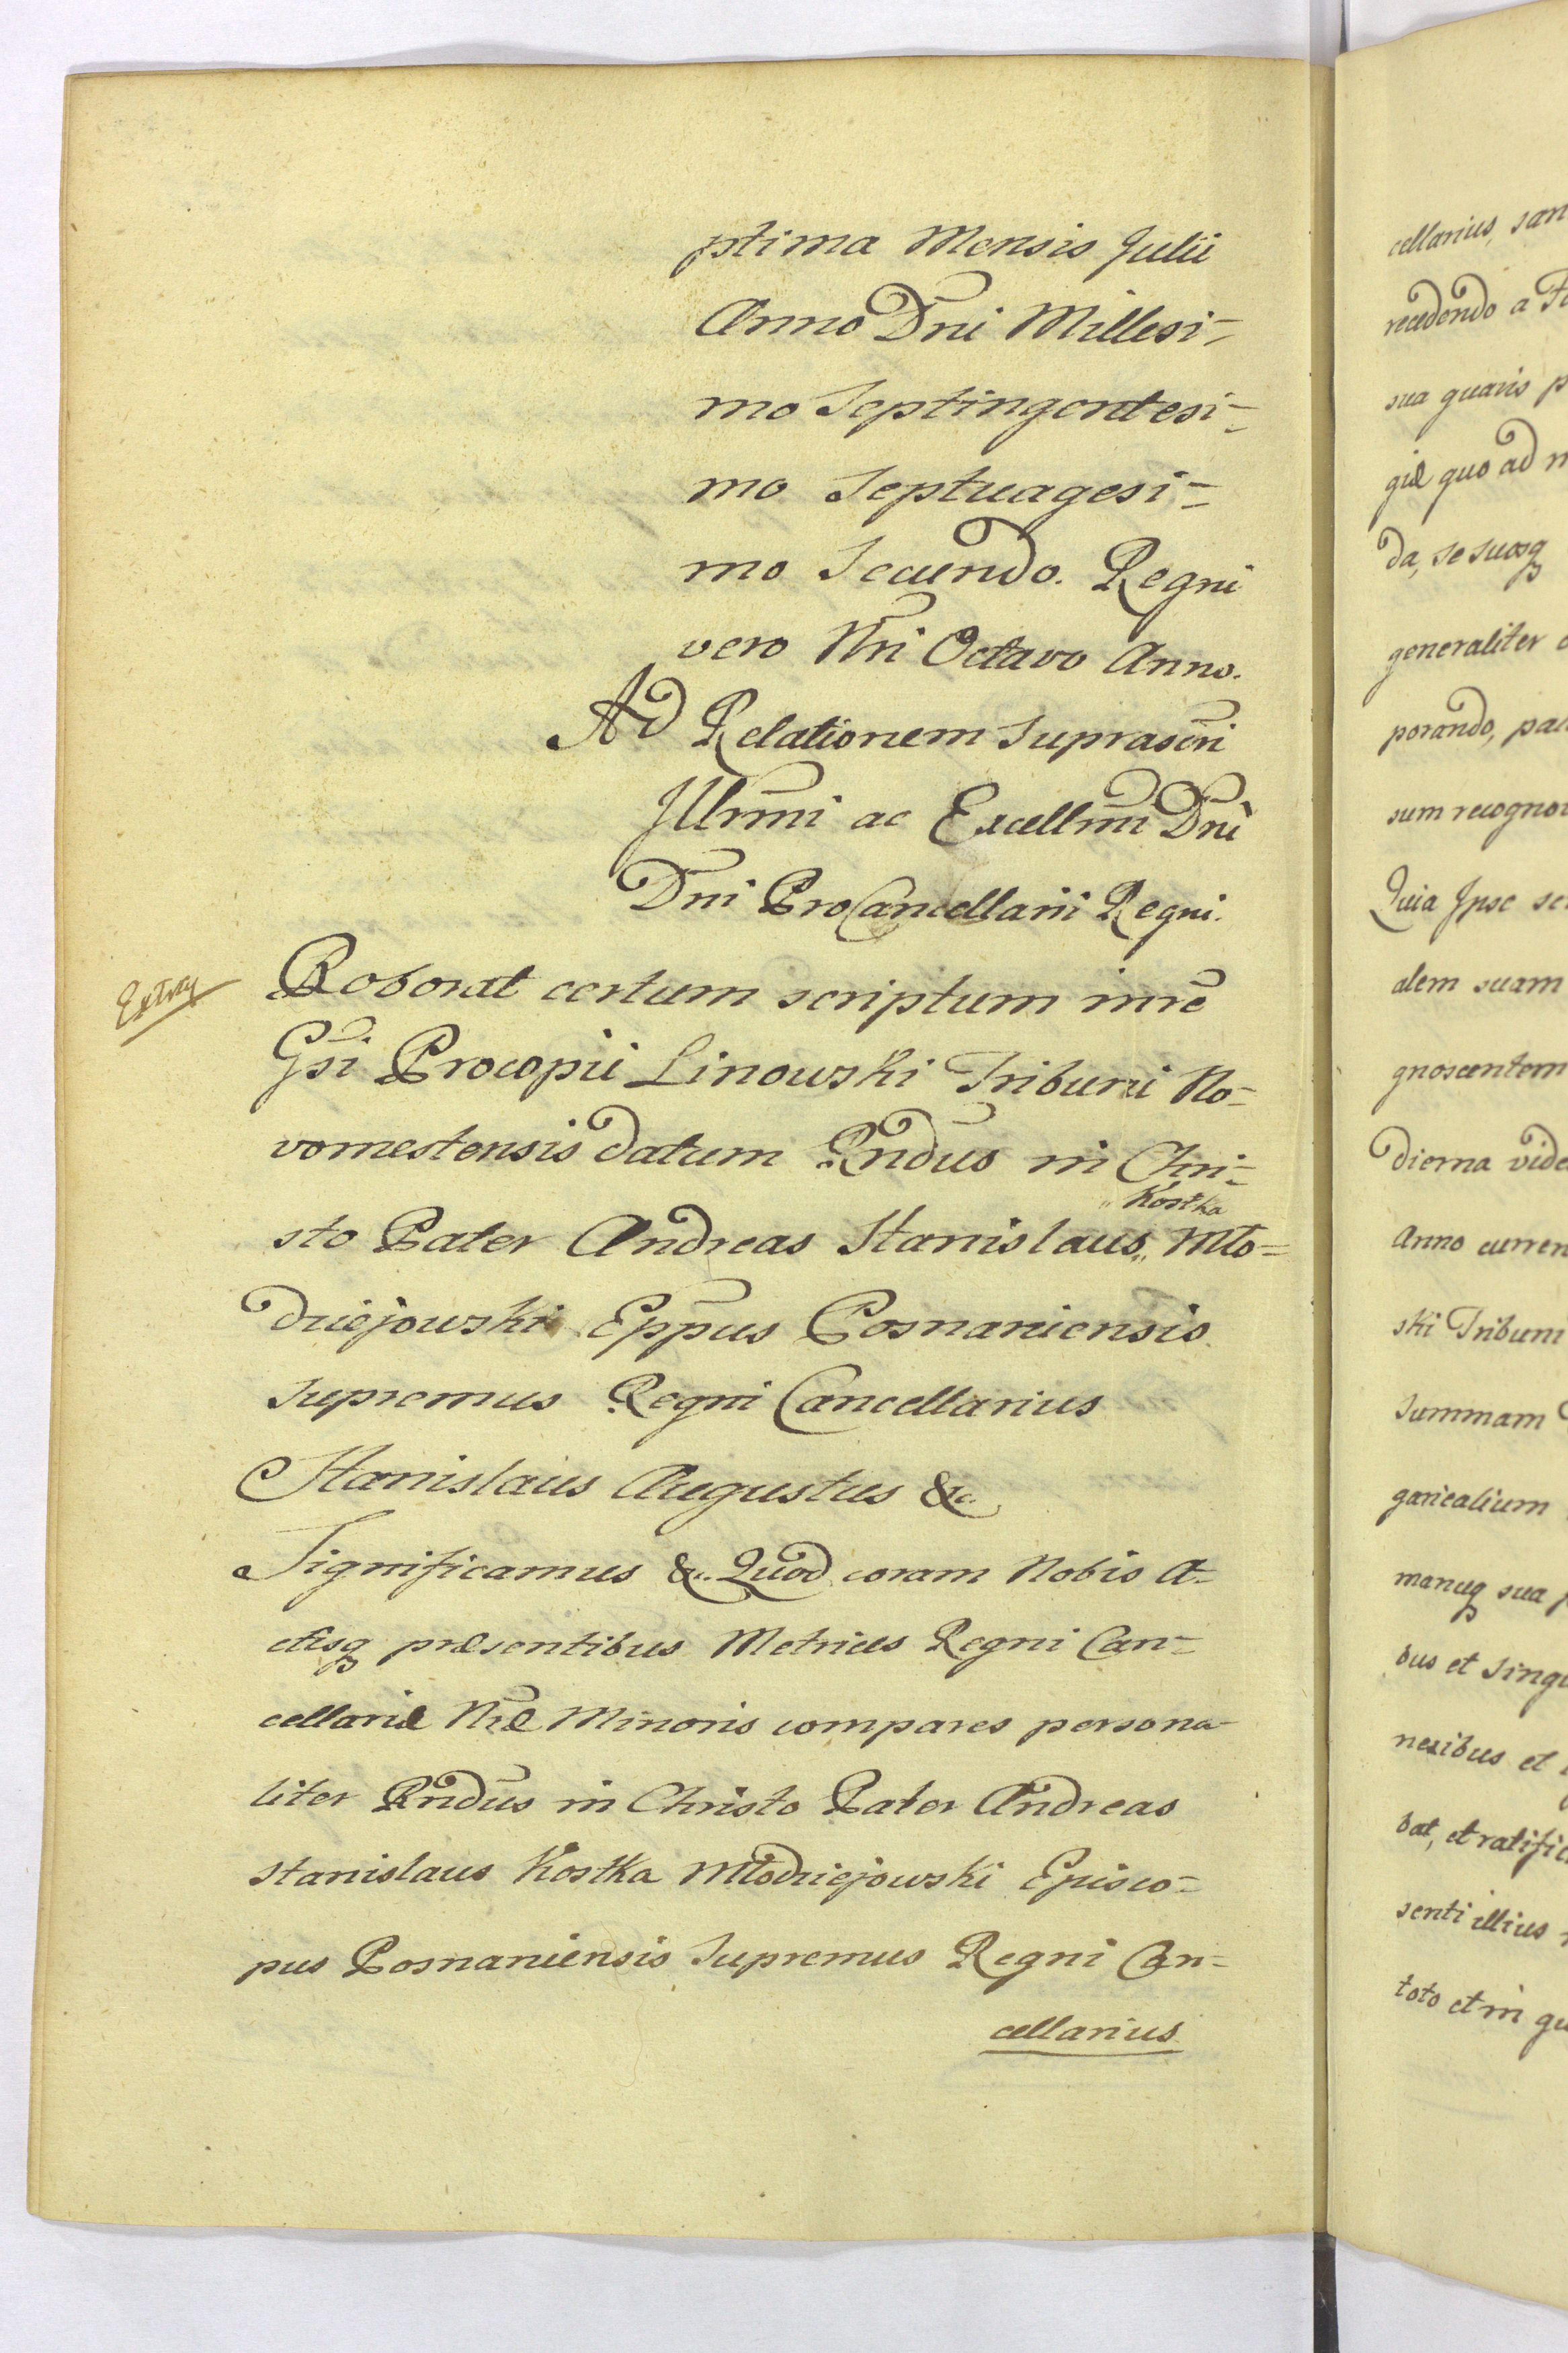 ptima Mensis Julii
Anno Dni Millesi-
mo Septingentesi-
mo Septuagesi-
mo Secundo. Regni
vero Nri Octavo Anno.
Ad Relationem suprascri
Illrmi ac Excellmi Dni
Dni ProCancellarii Regni.
Extray
Roborat certum scriptum in re
Gsi Procopii Linowski Tribuni No-
vomestensis datum Rndus in Chri-
Kostka
sto Pater Andreas Stanislaus,, Mło-
dziejowski Eppus Posnaniensis
supremus Regni Cancellarius
Stanislaus Augustus &c.
Significamus &c. Quod coram Nobis A-
ctisq præsentibus Metrices Regni Can-
cellariæ Nræ Minoris compares persona
liter Rndus in Christo Pater Andreas
Stanislaus Kostka Młodziejowski Episco-
pus Posnaniensis Supremus Regni Can-
cellarius
cellarius, san
recedendo a
sua quavis p
giæ quo ad
da, se suosq
generaliter
porando, pal
sum recogno
Quia Ipse se
alem suam
gnoscentem
dierna vide
Anno curren
ski Tribuni
Summam
garicalium
manuq sua
bus et singu
nexibus et
bat, et ratific
senti illius
toto et in qu